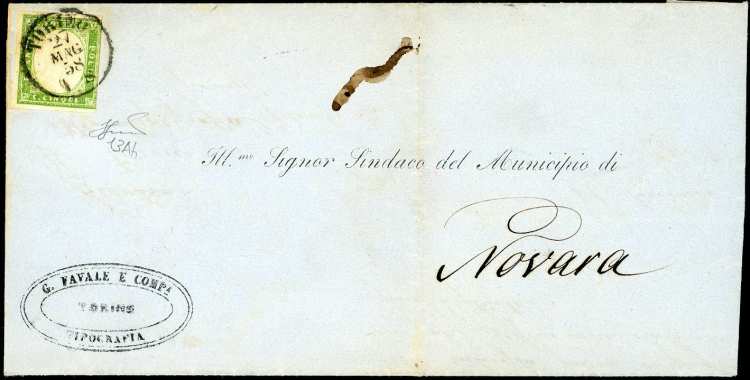 TORINO
27
MAG
58
C. CINQUE
13Ab
Ill.mo Signor Sindaco del Municipio di
Novara
G. FAVALE E COMPA
TORINO
TIPOGRAFIA